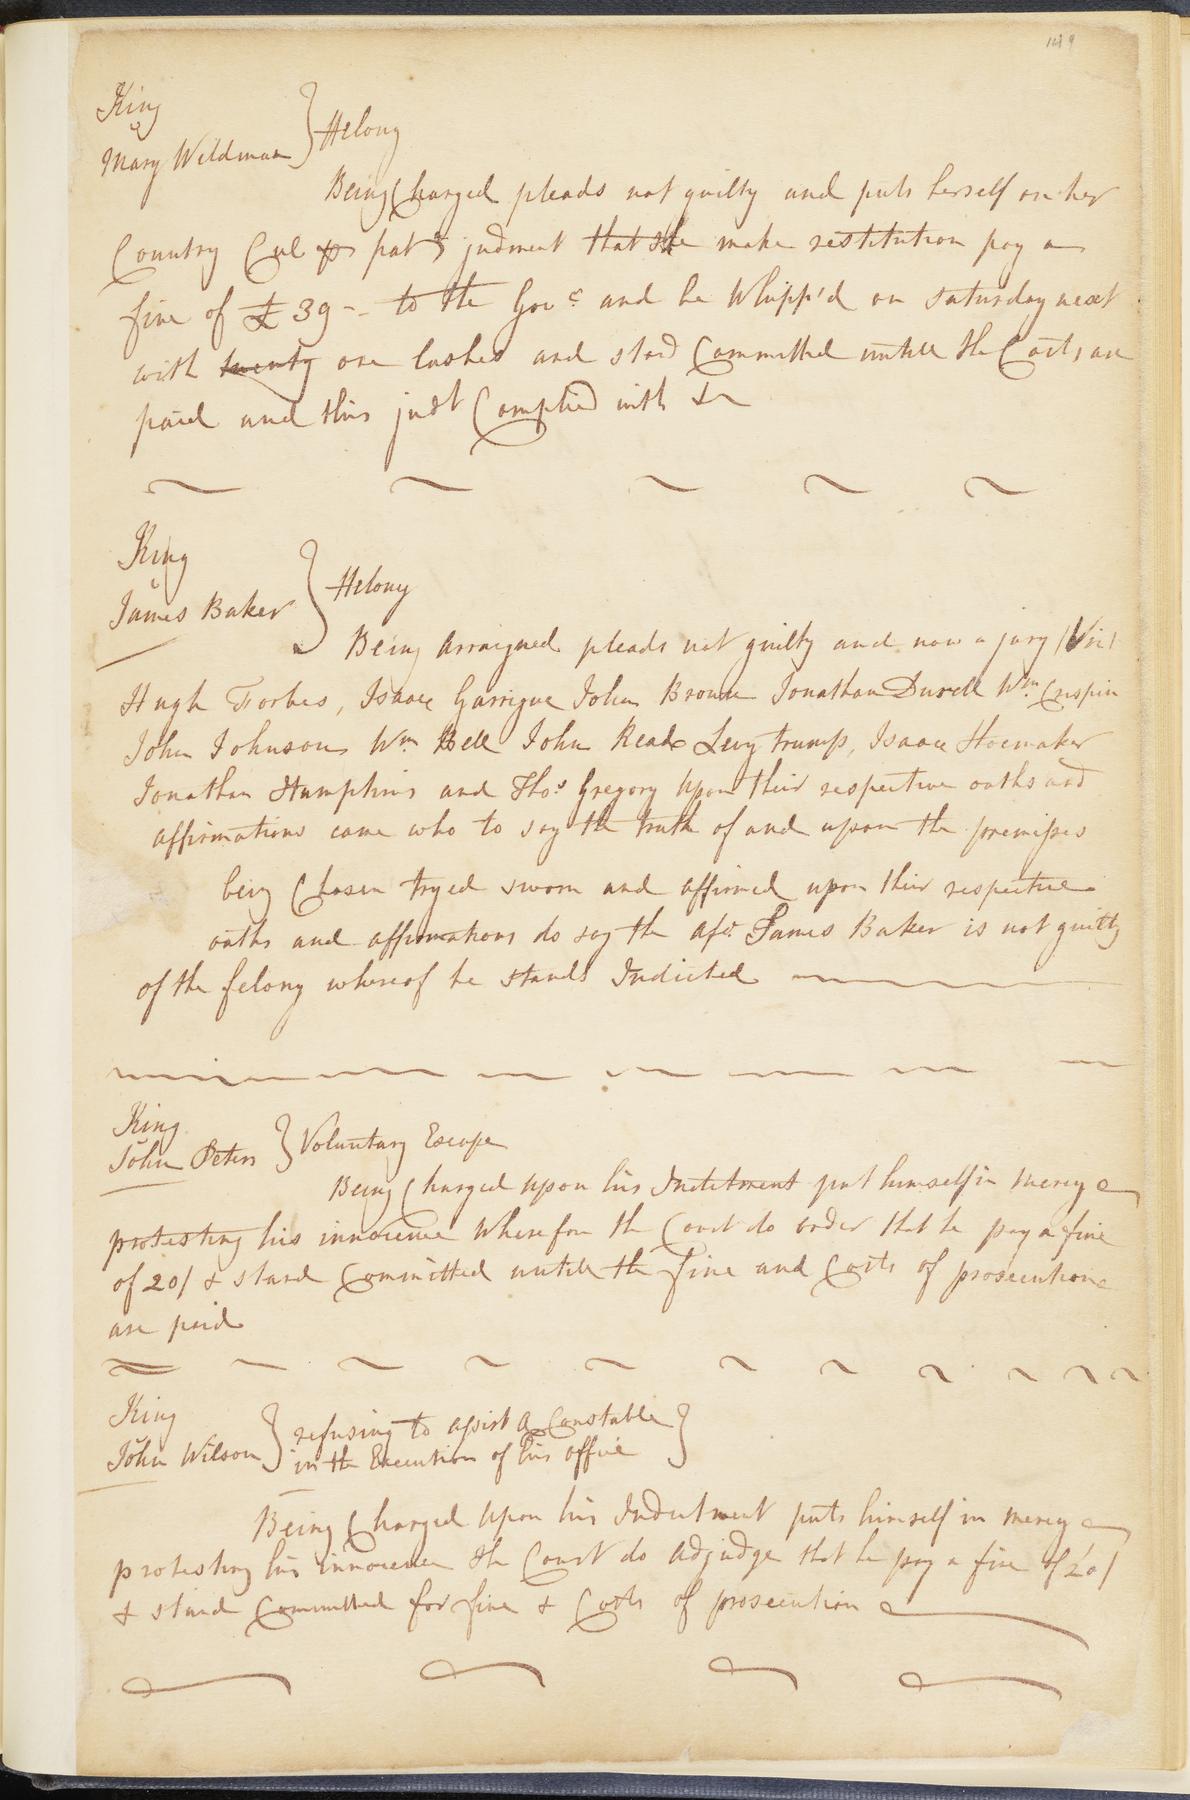 149
King
v
Mary Wildman } Felony
Being Charged pleads not guilty and puts herself on her
Country Cul & pat & judment that she make restitution pay a
fine of £39-- to the Govr. and be Whipp'd on Saturday next
with twenty one lashes and stand Committed untill the Costs are
paid and this judt Complied with &c
King
v
James Baker } Felony
Being Arraigned pleads not guilty and now a jury (Viz)
Hugh Forbes, Isaac Garrigue John Brown Jonathan Durell Wm. Crispin
John Johnson Wm Bell John Reade Levy trump, Isaac Shoemaker
Jonathan Humphris and Thos. Gregory Upon their respective oaths and
affirmations came who to say the truth of and upon the premisses
being Chosen tryed sworn and affirmed upon their respective
oaths and affirmations do say the afsd. James Baker is not guilty
of the felony whereof he stands Indicted
King
v
John Peters } Voluntary Escape
Being Charged upon his Inditment put himself in Mercy
protesting his innocence Wherefore the Court do order that he pay a fine
of 20/ & stand Committed untill the fine and Costs of prosecution
are paid
King
v
John Wilson } refusing to assist a Constable
in the Execution of his office }
Being Charged Upon his Indictment puts himself in mercy
protesting his innocence the Court do Adjudge that he pay a fine of 20/
& stand Committed for fine & Costs of prosecution